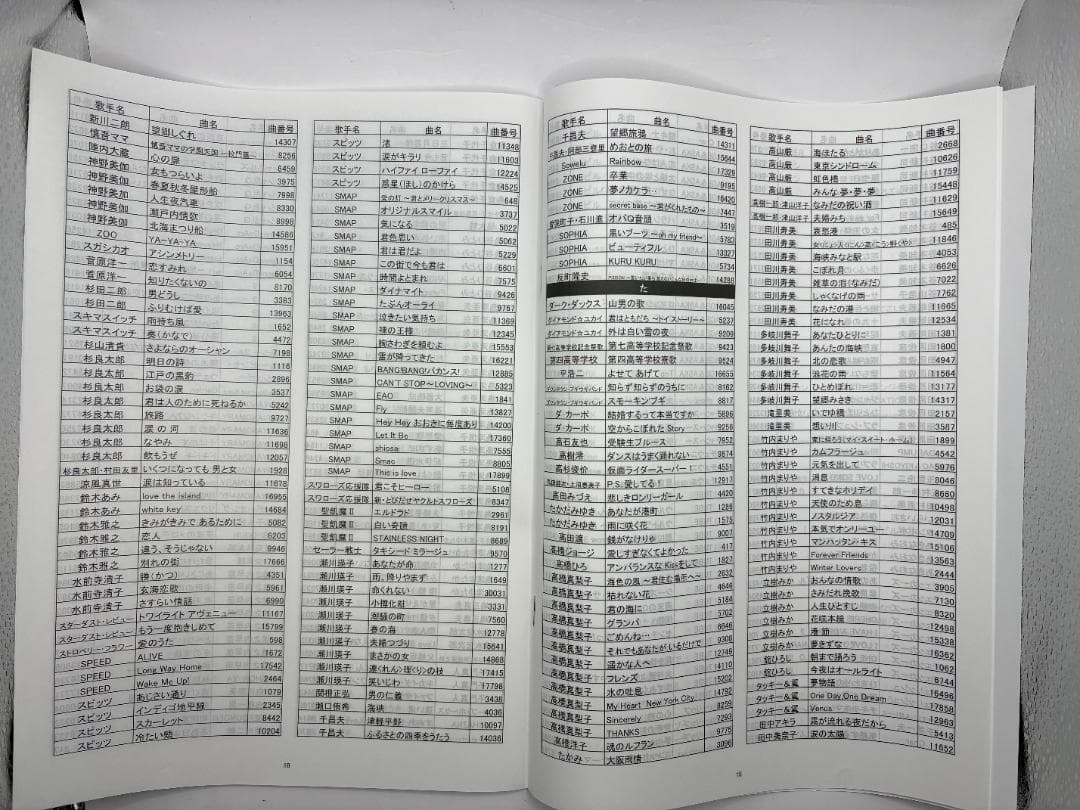 歌手名 曲名 曲番号
新川二朗 望郷しぐれ 14307
慎吾ママ 慎吾ママの学園天国 8256
陣内大蔵 心の扉 8459
神野美伽 女もつらいよ 3975
神野美伽 春夏秋冬屋形船 7998
神野美加 人生夜汽車 8330
神野美伽 瀬戸内情歌 8998
神野美伽 北海まつり船 14586
ZOO YA-YA-YA 15951
スガシカオ アシンメトリー 1154
菅原洋一 恋すみれ 6054
菅原洋一 知りたくないの 8170
杉田二郎 男どうし 3383
杉田二郎 ふりむけば愛 13963
スキマスイッチ 雨待ち風 1652
スキマスイッチ 奏(かなで) 4472
杉山清貴 さよならのオーシャン 7198
杉良太郎 明日の詩 1116
杉良太郎 江戸の黒豹 2896
杉良太郎 お袋の涙 3537
杉良太郎 君は人のために死ねるか 5242
杉良太郎 旅路 9727
杉良太郎 涙の河 11636
杉良太郎 なやみ 11698
杉良太郎 飲もうぜ 12057
杉良太郎・村田友里 いくつになっても 男と女 1928
涼風真世 涙は知っている 11678
鈴木あみ love the island 16955
鈴木あみ white key 14684
鈴木雅之 きみがきみであるために 5082
鈴木雅之 恋人 6203
鈴木雅之 違う、そうじゃない 9946
鈴木雅之 別れの街 17666
水前寺清子 勝(かつ) 4351
水前寺清子 玄海恋歌 5961
水前寺清子 さすらい情話 6990
スターダスト・レビュー トワイライト アヴェニュー 11167
スターダスト・レビュー もう一度抱きしめて 15799
ストロベリー・フラワー 愛のうた 598
SPEED ALIVE 1672
SPEED Long Way Home 17542
SPEED Wake Me Up! 2464
スピッツ あじさい通り 1079
スピッツ インディゴ地平線 2345
スピッツ スカーレット 8442
スピッツ 冷たい頬 10204
歌手名 曲名 曲番号
スピッツ 渚 11348
スピッツ 涙がキラリ 11603
スピッツ ハイファイ ローファイ 12224
スピッツ 惑星(ほし)のかけら 14525
SMAP 646
SMAP オリジナルスマイル 3737
SMAP 気になる 5022
SMAP 君色思い 5062
SMAP 君は君だよ 5229
SMAP この街で今も君は 6601
SMAP 時間よとまれ 7575
SMAP ダイナマイト 9426
SMAP たぶんオーライ 9757
SMAP 泣きたい気持ち 11369
SMAP 裸の王様 12345
SMAP 胸さわぎを頼むよ 15553
SMAP 雪が降ってきた 16221
SMAP BANG!BANG!バカンス! 12885
SMAP CAN'T STOP~LOVING~ 5323
SMAP EAO 1841
SMAP Fly 13827
SMAP Hey Hey おおきに毎度あり 14200
SMAP Let It Be 17360
SMAP shiosai 7555
SMAP Smac 8805
SMAP This is love 17899
スワローズ応援隊 君こそヒーロー 5108
スワローズ応援隊 新・とびだせヤクルトスワローズ 8347
聖飢魔Ⅱ エルドラド 2961
聖飢魔Ⅱ 白い奇蹟 8191
聖飢魔Ⅱ STAINLESS NIGHT 8689
セーラー戦士 タキシード ミラージュ 9570
瀬川瑛子 あなたが命 1277
瀬川瑛子 雨、降りやまず 1649
瀬川瑛子 命くれない 30031
瀬川瑛子 小樽化粧 3331
瀬川瑛子 思騒の町 7560
瀬川瑛子 春の海 12778
瀬川瑛子 夫婦つづり 15641
瀬川瑛子 まさかの女 14868
瀬川瑛子 17415
瀬川瑛子 笑いじわ 17798
関根正弘 男の仁義 3438
瀬口侑希 海峡 4036
千昌夫 津軽平野 10097
千昌夫 ふるさとの四季をうたう 14036
18
歌手名 曲名 曲番号
千昌夫 望郷旅鴉 14311
めおとの旅 15644
Sowelu Rainbow 17329
ZONE 卒業 9195
ZONE 夢ノカケラ… 16420
ZONE secret base ~君がくれたもの~ 7447
オバQ音頭 3519
SOPHIA 黒いブーツ ~oh my friend~ 5783
SOPHIA ビューティフル 13327
SOPHIA KURU KURU 5734
14288
た
ダーク・ダックス 山男の歌 16045
ダイアモンド☆ユカイ 君はともだち ~トイ・ストーリー~ 5237
ダイアモンド☆ユカイ 外は白い雪の夜 9209
第七高等学校記念祭歌 9423
第四高等学校 第四高等学校寮歌 9524
平浩二 よせて あげて 16655
ダウンタウン・ブギウギバンド 知らず知らずのうちに 8162
ダウンタウン・ブギウギバンド スモーキンブギ 8817
ダ・カーポ 結婚するって本当ですか 5696
ダ・カーポ 空からこぼれた Story 9256
高石友也 受験生ブルース 7952
高樹澪 ダンスはうまく踊れない 9674
高杉俊价 仮面ライダースーパー1 4551
P.S.愛してる! 12917
高田みづえ 悲しきロンリーガール 4420
たかだみゆき あなたが港町 1286
たかだみゆき 雨に咲く花 1575
高田渡 銭がなけりゃ 9007
高橋ジョージ 愛しすぎなくてよかった 417
高橋ひろ アンバランスなKissをして 1827
高橋真梨子 海色の風~君住む場所へ~ 2632
高橋真梨子 枯れない花 4646
高橋真梨子 君の海に 5184
高橋真梨子 グランパ 5702
高橋真梨子 ごめんね… 6646
高橋真梨子 それでもあなたがいるだけで 9308
高橋真梨子 遥かな人へ 12748
高橋真梨子 フレンズ 14110
高橋真梨子 水の吐息 15202
高橋真梨子 My Heart New York City 14792
高橋真梨子 Sincerely 8255
高橋真梨子 THANKS 7293
高橋洋子 魂のルフラン 9775
たかみ 大阪雨情 3006
歌手名 曲名 曲番号
高山厳 海ほたる 2668
高山厳 東京シンドローム 10626
高山厳 虹色橋 11759
高山厳 みんな夢・夢・夢 15448
なみだの祝い酒 11629
夫婦みち 15649
田川寿美 哀愁港 485
田川寿美 11846
田川寿美 海峡みなと駅 4053
田川寿美 こぼれ月 6626
田川寿美 雑草の酒(なみだ) 7022
田川寿美 しゃくなげの雨 7762
田川寿美 なみだの湯 11665
田川寿美 花になれ 12534
多岐川舞子 あなたひと引に 1381
多岐川舞子 あんたの海峡 1800
多岐川舞子 北の恋歌 4947
多岐川舞子 浪花の雨 11564
多岐川舞子 ひとめぼれ 13177
多岐川舞子 望郷みさき 14317
滝里美 いでゆ橋 2157
滝里美 想い川 3567
竹内まりや 家に帰ろう(マイ・スイート・ホーム) 1899
竹内まりや カムフラージュ 4542
竹内まりや 元気を出して 5976
竹内まりや 消息 8046
竹内まりや すてきなホリデイ 8660
竹内まりや 天使のため息 10498
竹内まりや ノスタルジア 12031
竹内まりや 本気でオンリーユー 14709
竹内まりや マンハッタン・キス 15106
竹内まりや Forever Friends 13563
竹内まりや Winter Lovers 2444
立樹みか おんなの情歌 3905
立樹みか さみだれ挽歌 7130
立樹みか 人生ひとすじ 8320
立樹みか 花咲本線 12498
立樹みか 港節 15338
立樹みか 夢きずな 16362
舘ひろし 朝まで踊ろう 1062
舘ひろし 今夜はオールライト 6744
タッキー&翼 夢物語 16496
タッキー&翼 One Day,One Dream 17858
タッキー&翼 Venus 12963
田中アキラ 霧が流れる夜だから 5413
田中美奈子 涙の太陽 11652